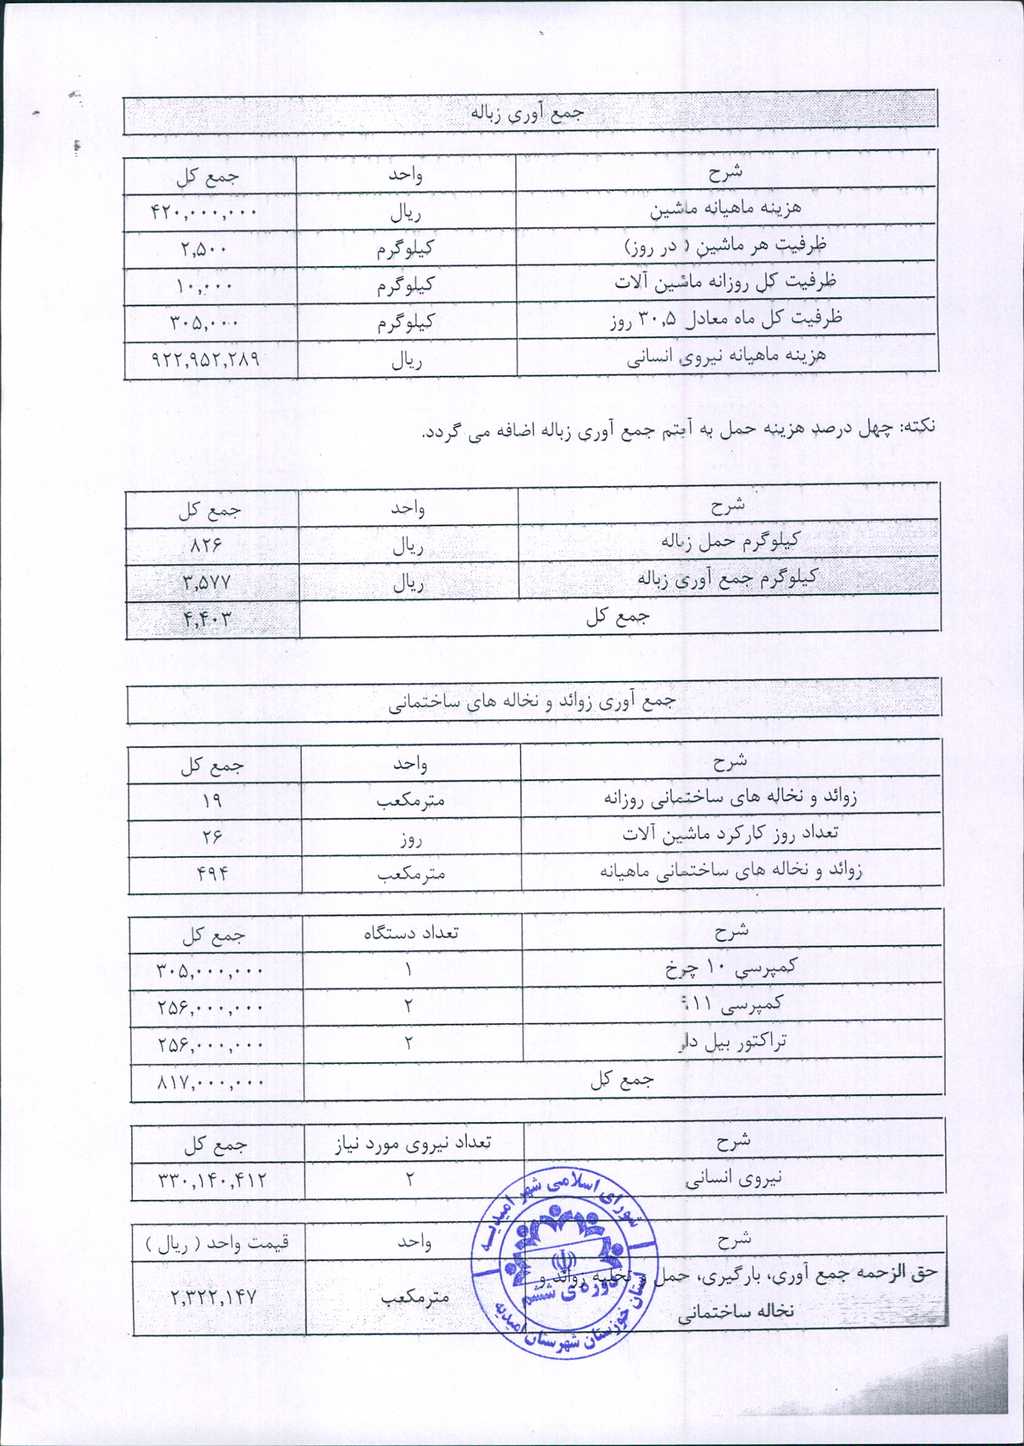 جمع آوری زباله
شرح واحد جمع کل
هزینه ماهیانه ماشین ریال ۴۲۰,۰۰۰,۰۰۰
ظرفیت هر ماشین ( در روز) کیلوگرم ۲,۵۰۰
ظرفیت کل روزانه ماشین آلات کیلوگرم ۱۰,۰۰۰
ظرفیت کل ماه معادل ۳۰,۵ روز کیلوگرم ۳۰۵,۰۰۰
هزینه ماهیانه نیروی انسانی ریال ۹۲۲,۹۵۲,۲۸۹
نکته: چهل درصد هزینه حمل به آیتم جمع آوری زباله اضافه می گردد.
شرح واحد جمع کل
کیلوگرم حمل زباله ریال ۸۲۶
کیلوگرم جمع آوری زباله ریال ۳,۵۷۷
جمع کل ۴,۴۰۳
جمع آوری زوائد و نخاله های ساختمانی
شرح واحد جمع کل
زوائد و نخاله های ساختمانی روزانه مترمکعب ۱۹
تعداد روز کارکرد ماشین آلات روز ۲۶
زوائد و نخاله های ساختمانی ماهیانه مترمکعب ۴۹۴
شرح تعداد دستگاه جمع کل
کمپرسی ۱۰ چرخ ۱ ۳۰۵,۰۰۰,۰۰۰
کمپرسی ۲ ۲۵۶,۰۰۰,۰۰۰
تراکتور بیل دار ۲ ۲۵۶,۰۰۰,۰۰۰
جمع کل ۸۱۷,۰۰۰,۰۰۰
شرح تعداد نیروی مورد نیاز جمع کل
نیروی انسانی ۲ ۳۳۰,۱۴۰,۴۱۲
شرح واحد قیمت واحد ( ریال )
حق الزحمه جمع آوری، بارگیری، حمل و تخلیه زوائد و
نخاله ساختمانی مترمکعب ۲,۳۲۲,۱۴۷
شورای اسلامی شهر امیدیه
دوره‌ی ششم
استان خوزستان شهرستان امیدیه